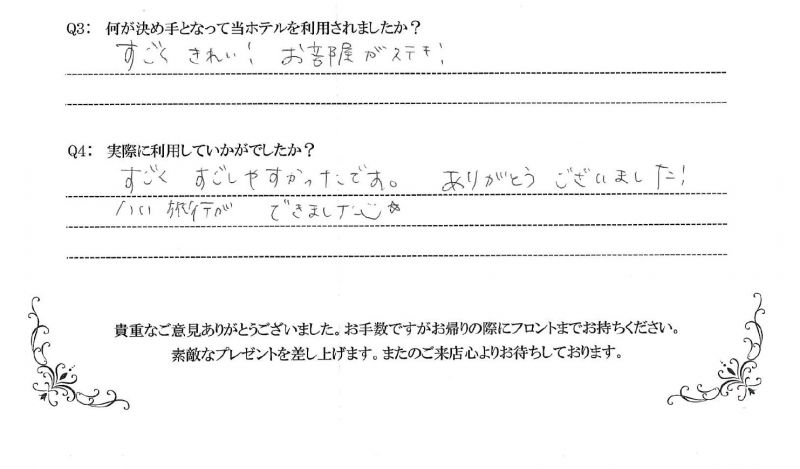 Q3： 何が決め手となって当ホテルを利用されましたか？
すごく きれい! お部屋がステキ!
Q4： 実際に利用していかがでしたか？
すごく すごしやすかったです。 ありがとう ございました!
いい 旅行が できました☆
貴重なご意見ありがとうございました。お手数ですがお帰りの際にフロントまでお持ちください。
素敵なプレゼントを差し上げます。またのご来店心よりお待ちしております。